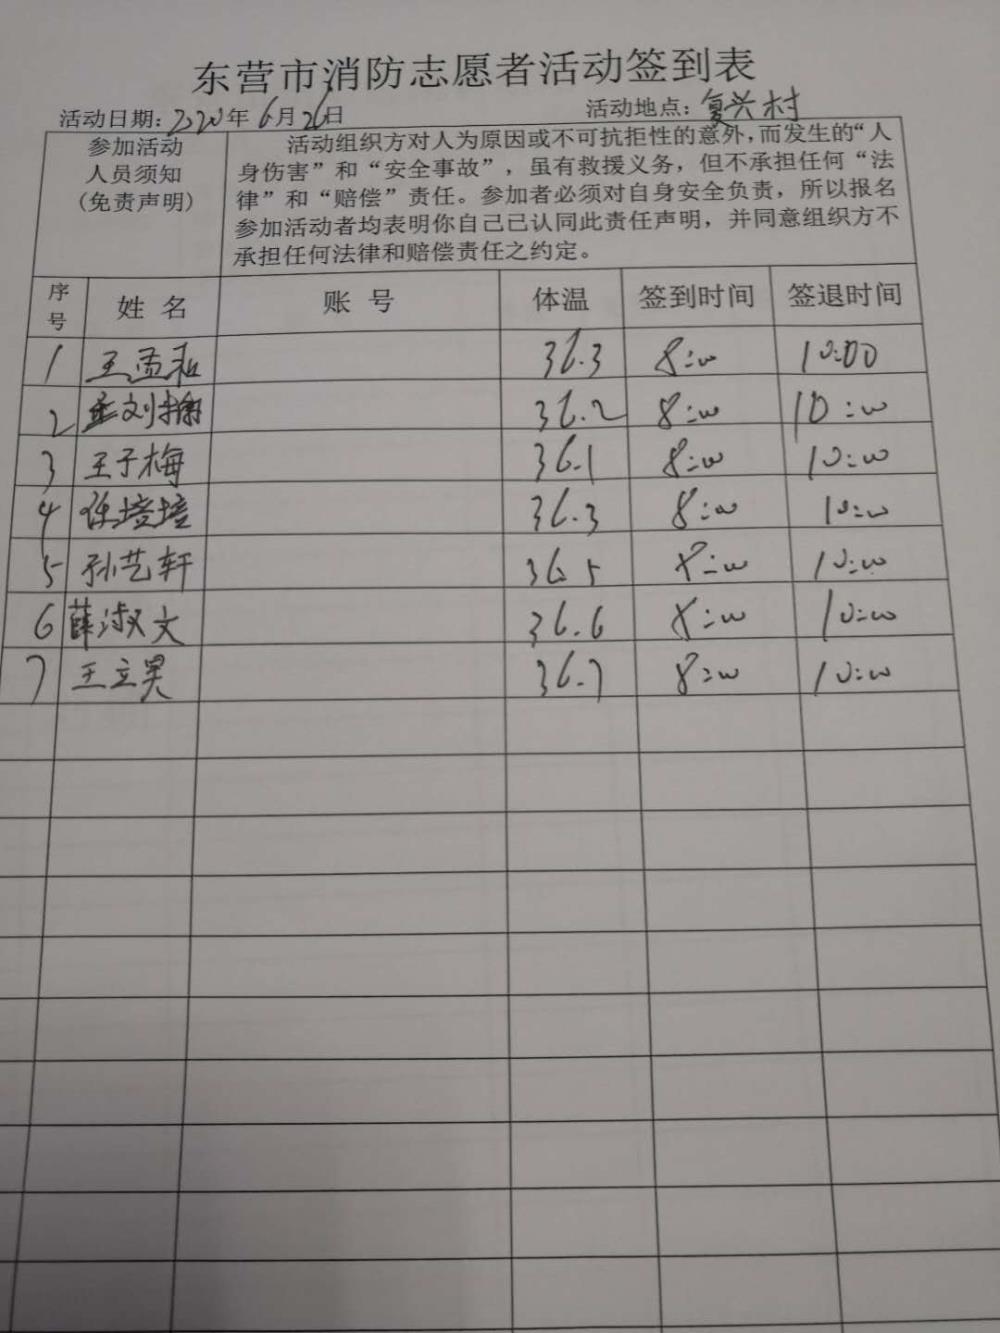 东营市消防志愿者活动签到表
活动日期：2020年6月26日 活动地点：复兴村
参加活动
人员须知
（免责声明）
活动组织方对人为原因或不可抗拒性的意外，而发生的“人
身伤害”和“安全事故”，虽有救援义务，但不承担任何“法
律”和“赔偿”责任。参加者必须对自身安全负责，所以报名
参加活动者均表明你自己已认同此责任声明，并同意组织方不
承担任何法律和赔偿责任之约定。
序号 姓名 账号 体温 签到时间 签退时间
1 王孟 36.3 8:00 10:00
2 刘 36.2 8:00 10:00
3 王子梅 36.1 8:00 10:00
4 培培 36.3 8:00 10:00
5 孙艺轩 36.5 8:00 10:00
6 薛淑文 36.6 8:00 10:00
7 王立昊 36.7 8:00 10:00